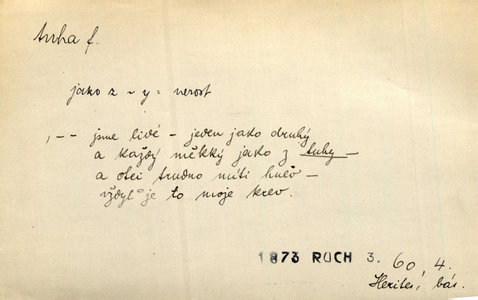 tuha f.
jako z - y = nerost
,-- jsme lidé - jeden jako druhý
a každý měkký jako z tuhy -
a otci trudno míti hněv -
vždyť je to moje krev.
1873 RUCH 3. 60, 4.
Herites, bás.